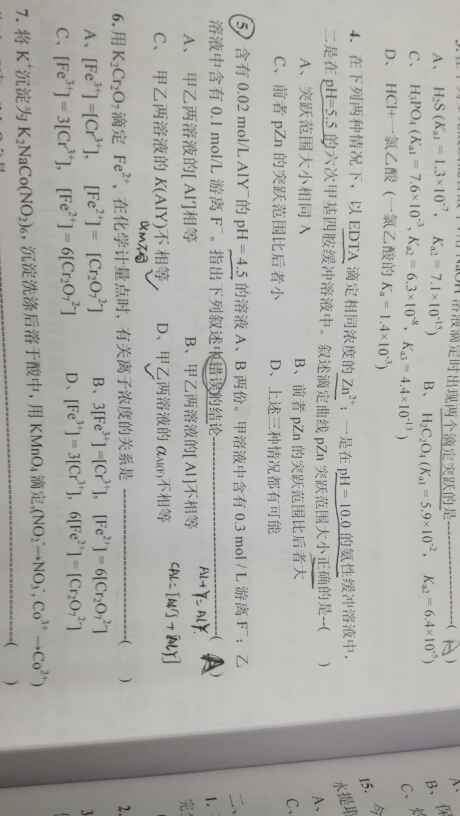 A、H₂S (Ka1 = 1.3×10⁻⁷, Ka2 = 7.1×10⁻¹⁵)
B、H₂C₂O₄ (Ka1 = 5.9×10⁻², Ka2 = 6.4×10⁻⁵)
C、H₃PO₄ (Ka1 = 7.6×10⁻³, Ka2 = 6.3×10⁻⁸, Ka3 = 4.4×10⁻¹³)
D、HCl+一氯乙酸 (一氯乙酸的 Ka = 1.4×10⁻³)
4. 在下列两种情况下，以 EDTA 滴定相同浓度的 Zn²⁺：一是在 pH = 10.0 的氨性缓冲溶液中，
二是在 pH=5.5 的六次甲基四胺缓冲溶液中。叙述滴定曲线 pZn 突跃范围大小正确的是--( )
A、突跃范围大小相同
B、前者 pZn 的突跃范围比后者大
C、前者 pZn 的突跃范围比后者小
D、上述三种情况都有可能
5 含有 0.02 mol/L AlY⁻ 的 pH = 4.5 的溶液 A、B 两份。甲溶液中含有 0.3 mol / L 游离 F⁻；乙
溶液中含有 0.1 mol/L 游离 F⁻。指出下列叙述中错误的结论----------( A )
A、甲乙两溶液的 [Al']相等
B、甲乙两溶液的 [Al]不相等
C、甲乙两溶液的 K(AlY)不相等
D、甲乙两溶液的 αAl(F)不相等
Al+Y=AlY
6. 用 K₂Cr₂O₇ 滴定 Fe²⁺，在化学计量点时，有关离子浓度的关系是 ----------( )
A、[Fe³⁺]=[Cr³⁺]， [Fe²⁺]= [Cr₂O₇²⁻]
B、3[Fe³⁺]=[Cr³⁺]， [Fe²⁺]= 6[Cr₂O₇²⁻]
C、[Fe³⁺] = 3[Cr³⁺]， [Fe²⁺] = 6[Cr₂O₇²⁻]
D、[Fe³⁺]= 3[Cr³⁺]， 6[Fe²⁺] = [Cr₂O₇²⁻]
7. 将 K⁺沉淀为 K₂NaCo(NO₂)₆，沉淀洗涤后溶于酸中，用 KMnO₄ 滴定,(NO₂⁻→NO₃⁻, Co³⁺ →Co²⁺)
15. 今
水提取
A、
C、
二、
1.
2.
3